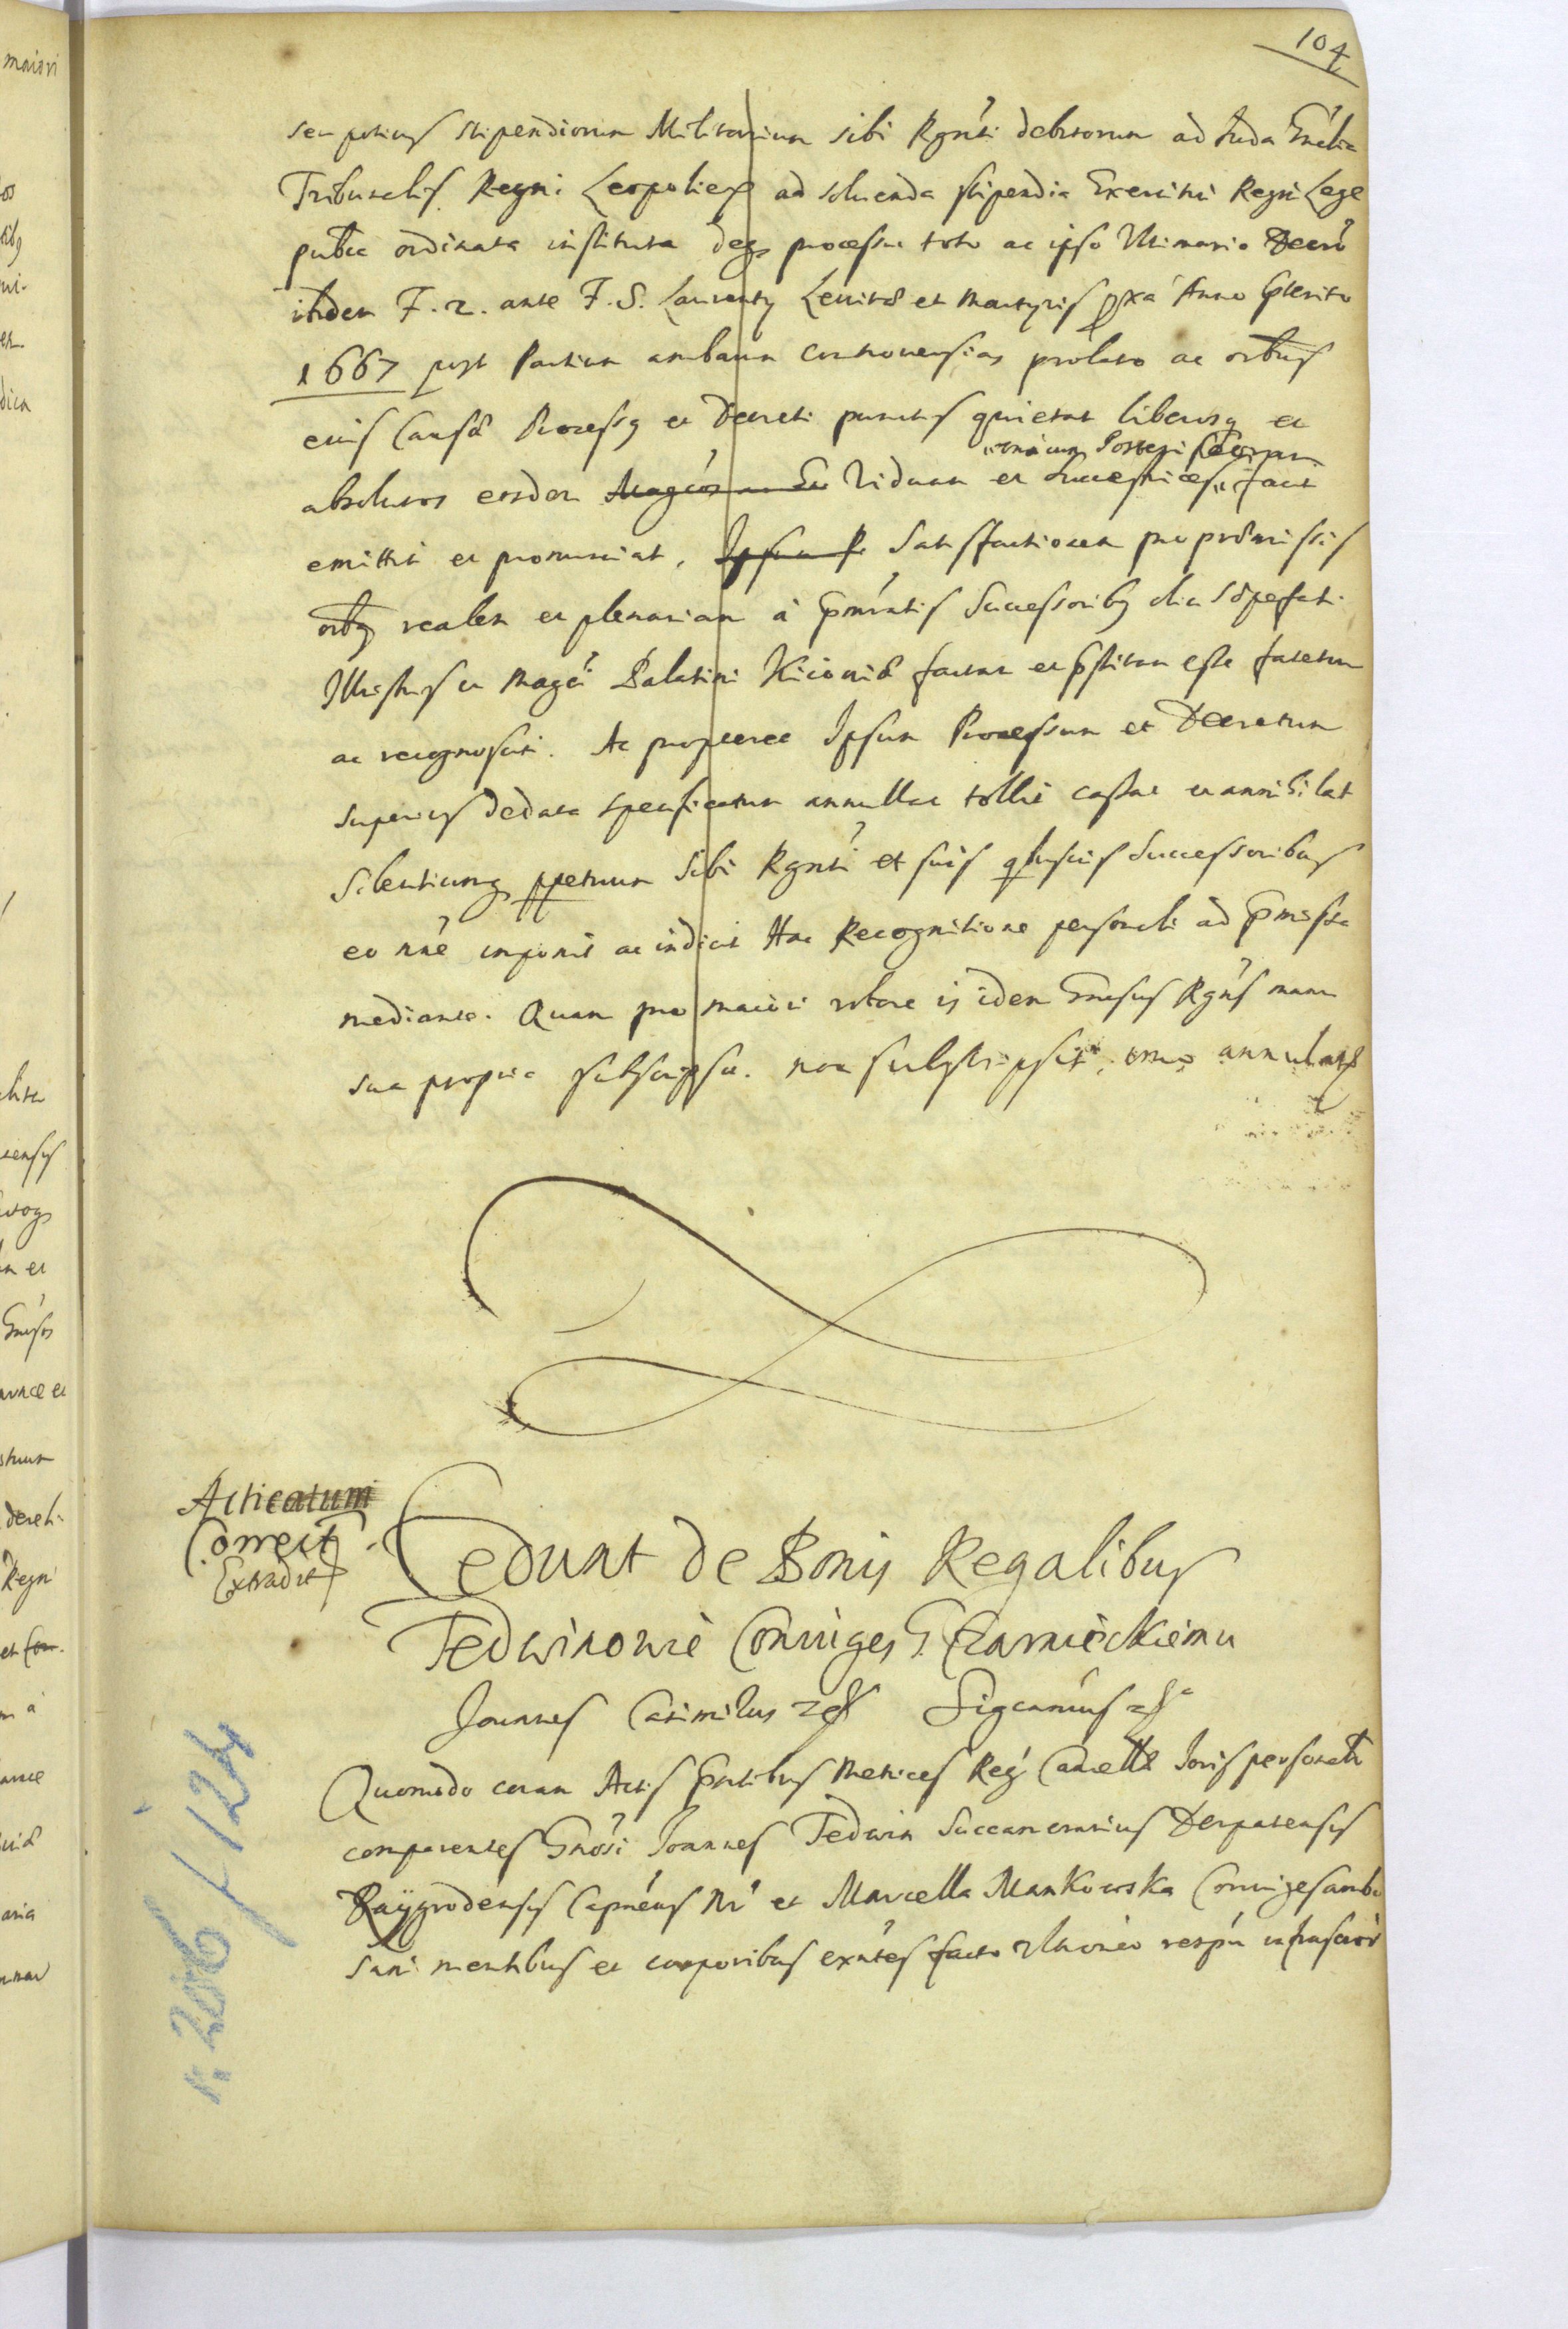 104
seu potius stipendiorum Militarium sibi Rgnti debitorum ad Juda Gnalia
Tribunalis Regni Leopolien ad soluenda stipendia Exercitui Regni Lege
publca ordinata instituta deq processu toto ac ipso Ultimario Decro
ibidem F. 2. ante F. S. Laurenty Leuitæ et Martyris pxa Anno Pterito
1667 post Partium ambarum controuersias prolato ac oibus
euis Causæ Processq et Decreti punctis quietat liberosq et
omnium Posteri
absolutos eosdem Magcos ac Gn Viduam et Successrices facit
emittit et pronunciat, Ipsum P Satisfactionem pro præmissis
oibq realem et plenariam à Pmoratis Successoribq olim Sæpefati
Illustris et Magci Palatini Kiouiæ factam et Pstitam esse fatetur
ac recognoscit. Ac propterea Ipsum Processum et Decretum
superius dedata specificatum annullat tollit cassat et annihilat
silentiumq ppetuum Sibi Rgnti et suis qbusuis Successoribus
eo nne imponit ac indicit Hac Recognitione personali ad Pmissa
mediante. Quam pro maiori robore is idem Gnesus Rgns manu
sua propria subscripsit. non subscripsit, imo annulat
Acticatum
Correct
Extradit
Cedunt de Bonis Regalibus
Tedwinowie Coniuges G. Czarnieckiemu
Joannes Casimirus Sigcamus
Quomodo coram Actis Pntibus Metrices Reg Cancellæ Ioris personalr
comparentes Gnosi Joannes Tedwin Succamerarius Derpatensis
Raygrodensis Capneus Nr et Marcella Mankowska Coniuges ambo
sani mentibus et corporibus exntes facto Uhorico respu infrascrôr
n. 206/124